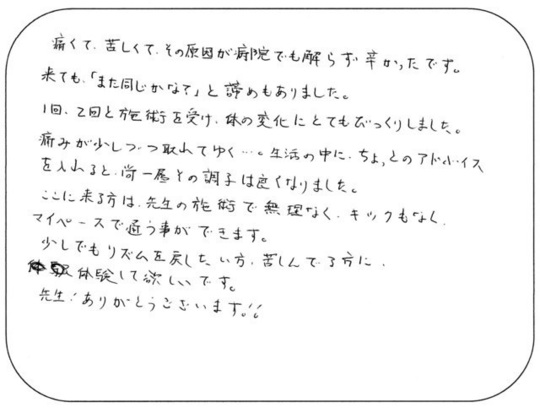 痛くて、苦しくて、その原因が病院でも解らず辛かったです。
来ても、「また同じかな?」と諦めもありました。
1回、2回と施術を受け、体の変化にとてもびっくりしました。
痛みが少しづつ取れてゆく…。生活の中に、ちょっとのアドバイス
を入れると、尚一層その調子は良くなりました。
ここに来る方は、先生の施術で無理なく、キツクもなく、
マイペースで通う事ができます。
少しでもリズムを戻したい方、苦しんでる方に、
体験して欲しいです。
先生!ありがとうございます!!